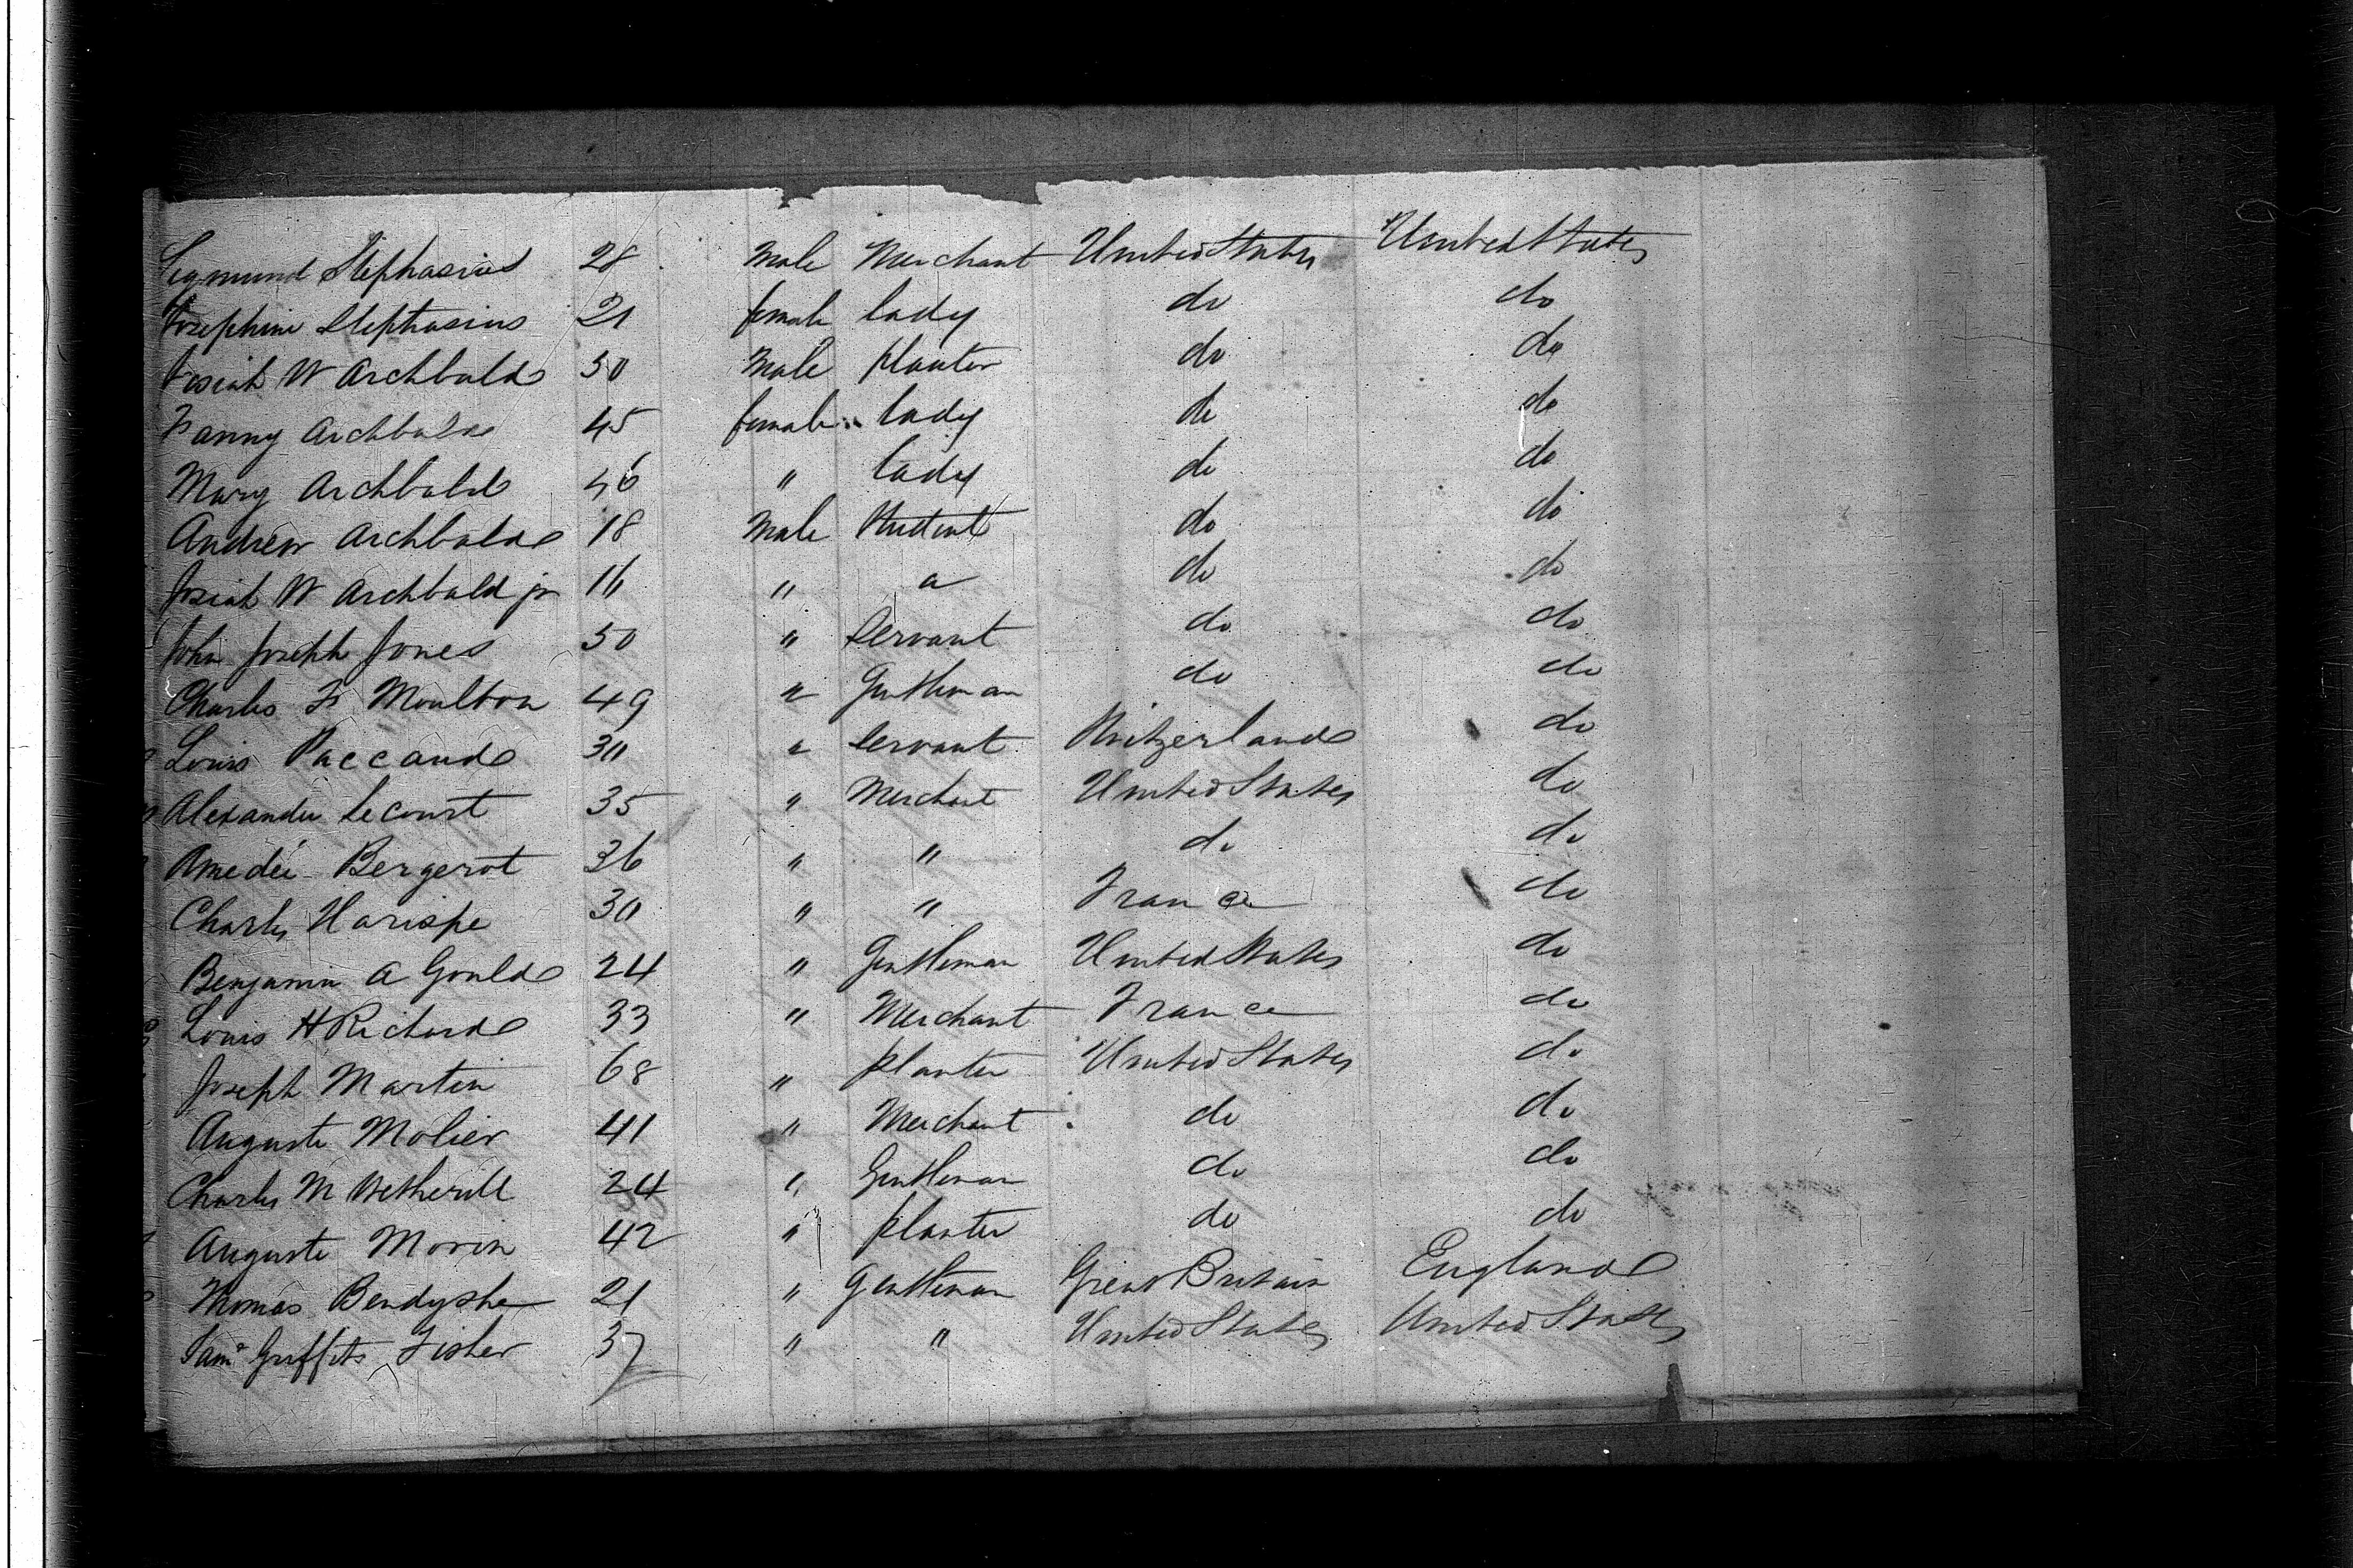 Sigmund Stephasius 28 Male Merchant United States United States
Josephine Stephasius 21 female lady do do
Josiah W Archbald 50 Male planter do do
Fanny Archbald 45 female lady do do
Mary Archbald 46 " lady do do
Andrew Archbald 18 Male Student do do
Josiah W Archbald jr 16 " " do do
John Joseph Jones 50 " Servant do do
Charles F Moulton 49 " Gentleman do do
Louis Paccaud 30 " Servant Switzerland do
Alexander Lecourt 35 " Merchant United States do
Amedée Bergerot 36 " " do do
Charles Harispe 30 " " France do
Benjamin A Gould 24 " Gentleman United States do
Louis H Richard 33 " Merchant France do
Joseph Martin 68 " planter United States do
Auguste Molier 41 " Merchant do do
Charles M Wetherill 24 " Gentleman do do
Auguste Morin 42 " planter do do
Thomas Bendyshe 21 " Gentleman Great Britain England
Saml Griffits Fisher 37 " " United States United States